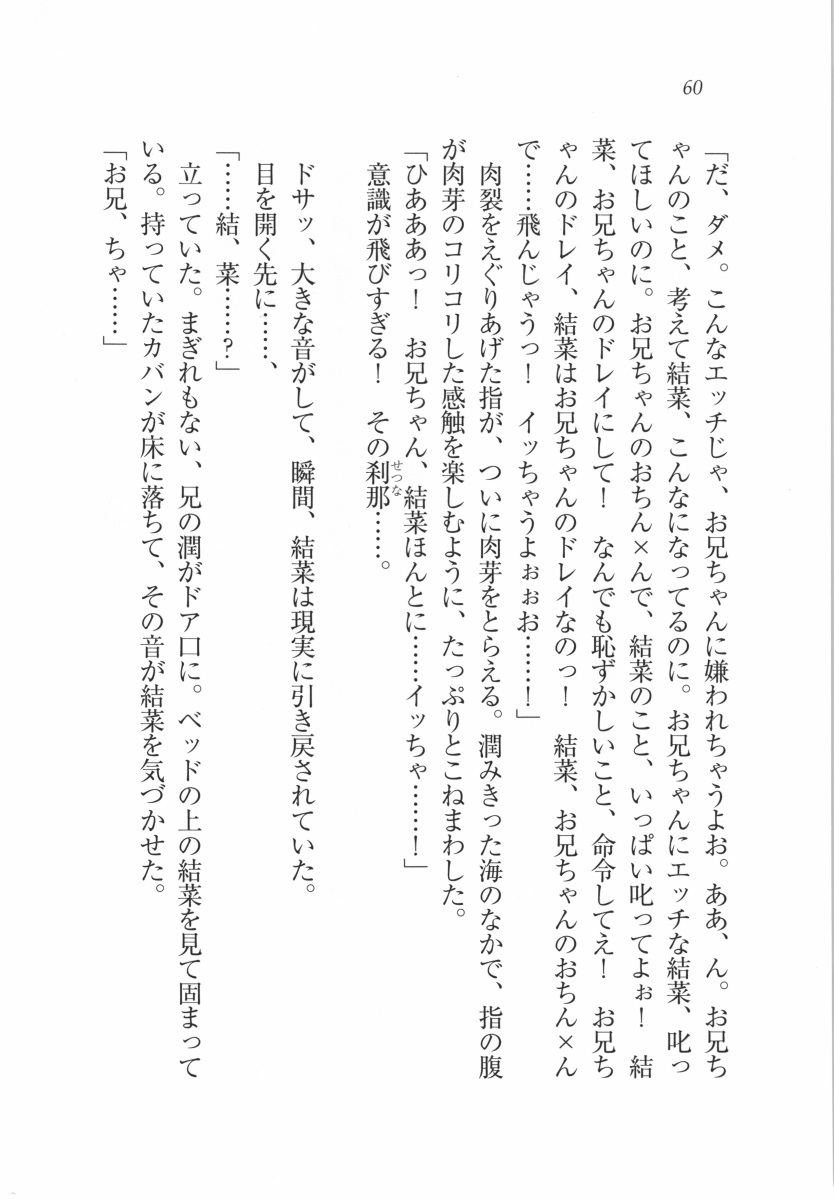 60
「だ、ダメ。こんなエッチじゃ、お兄ちゃんに嫌われちゃうよお。ああ、ん。お兄ち
ゃんのこと、考えて結菜、こんなになってるのに。お兄ちゃんにエッチな結菜、叱っ
てほしいのに。お兄ちゃんのおちん×んで、結菜のこと、いっぱい叱ってよぉ！　結
菜、お兄ちゃんのドレイにして！　なんでも恥ずかしいこと、命令してえ！　お兄ち
ゃんのドレイ、結菜はお兄ちゃんのドレイなのっ！　結菜、お兄ちゃんのおちん×ん
で……飛んじゃうっ！　イッちゃうよぉぉお……！」
肉裂をえぐりあげた指が、ついに肉芽をとらえる。潤みきった海のなかで、指の腹
が肉芽のコリコリした感触を楽しむように、たっぷりとこねまわした。
「ひあああっ！　お兄ちゃん、結菜ほんとに……イッちゃ……！」
意識が飛びすぎる！　その刹那せつな……。
ドサッ、大きな音がして、瞬間、結菜は現実に引き戻されていた。
目を開く先に……、
「……結、菜……？」
立っていた。まぎれもない、兄の潤がドア口に。ベッドの上の結菜を見て固まって
いる。持っていたカバンが床に落ちて、その音が結菜を気づかせた。
「お兄、ちゃ……」